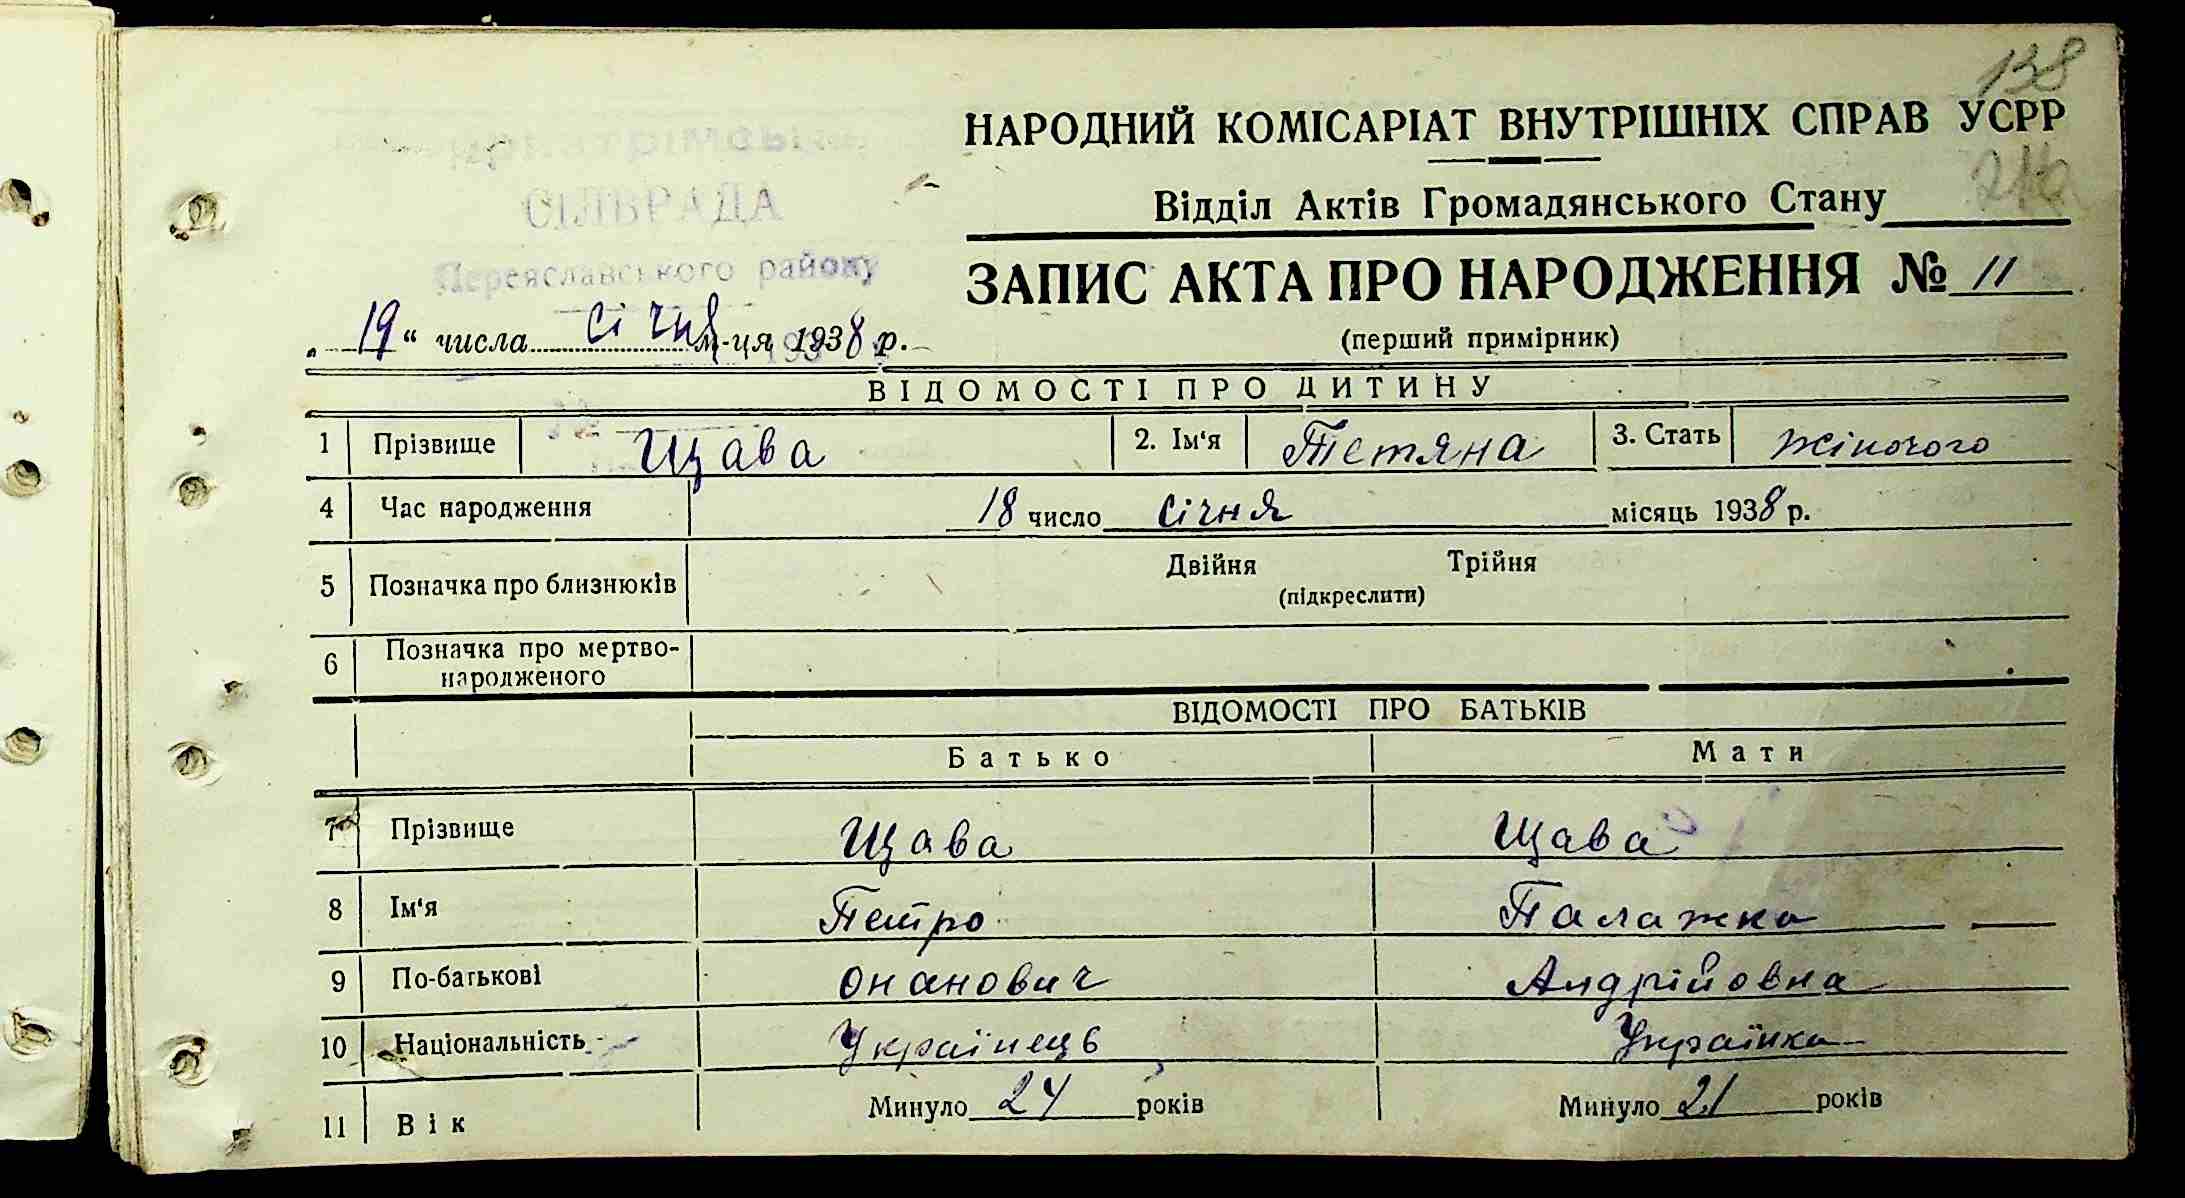 138
НАРОДНИЙ КОМІСАРІАТ ВНУТРІШНІХ СПРАВ УСРР
Відділ Актів Громадянського Стану
СІЛЬРАДА
Переяславського району
ЗАПИС АКТА ПРО НАРОДЖЕННЯ № 11
(перший примірник)
„19“ числа січня м-ця 1938 р.
ВІДОМОСТІ ПРО ДИТИНУ
1 Прізвище Щава 2. Ім'я Тетяна 3. Стать жіночого
4 Час народження 18 число січня місяць 1938 р.
5 Позначка про близнюків Двійня Трійня
(підкреслити)
6 Позначка про мертво-
народженого
ВІДОМОСТІ ПРО БАТЬКІВ
Батько Мати
7 Прізвище Щава Щава
8 Ім'я Петро Палажка
9 По-батькові Онанович Андрійовна
10 Національність Українець Українка
11 Вік Минуло 24 років Минуло 21 років